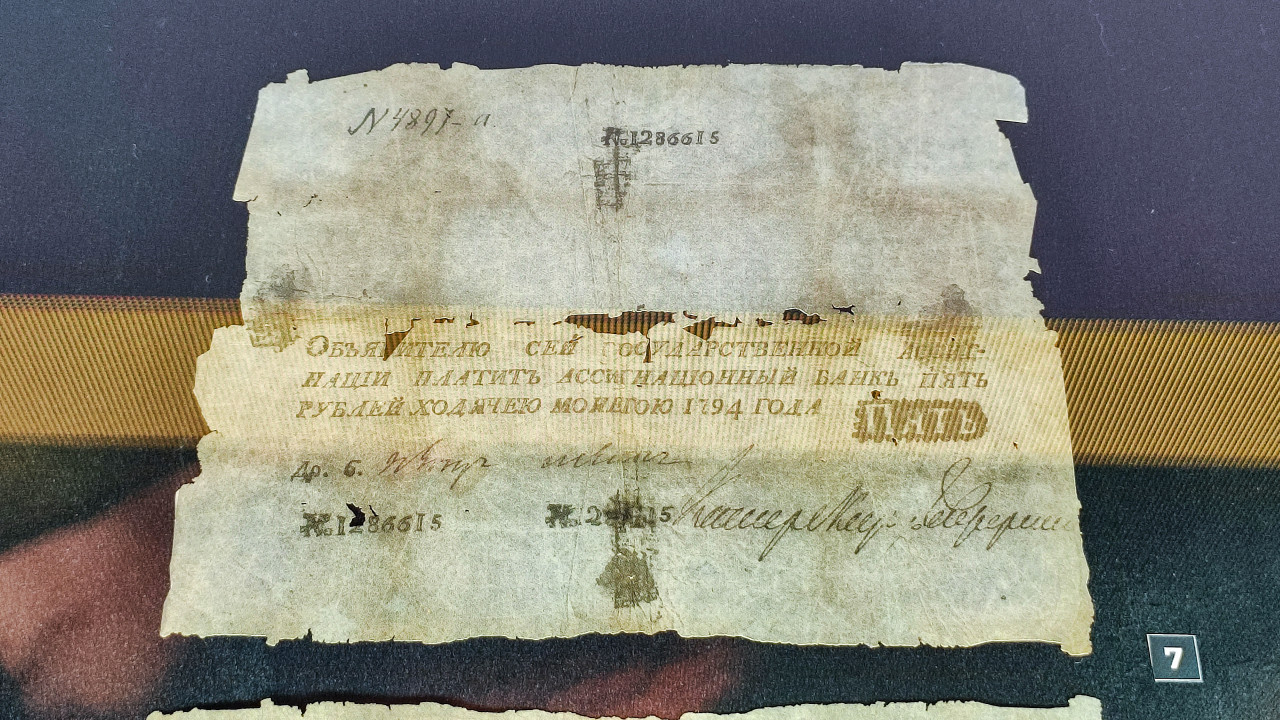 N 4897-а
№.1286615
Объявителю сей государственной ассиг-
нации платитъ ассигнацïонный банкъ пять
рублей ходячею монетою 1794 года
ПЯТЬ
Др. б.
№.1286615
№. 15
7